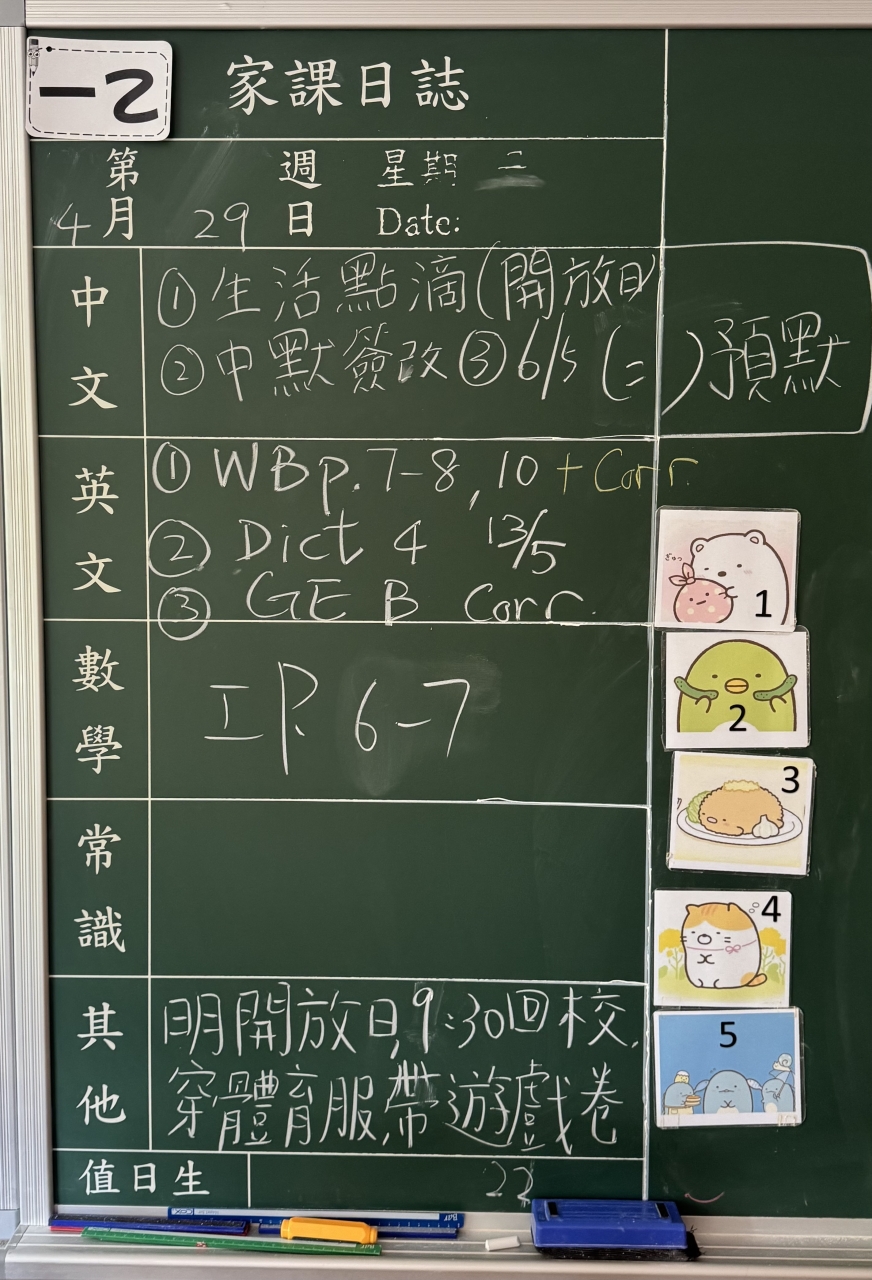 一乙
家課日誌
第 週 星期 二
4月 29 日 Date:
中文
①生活點滴(開放日)
②中默簽改③6/5 (二)預默
英文
① WB p.7-8, 10 + Corr.
② Dict 4 13/5
③ GE B Corr.
數學
工P. 6-7
常識
其他
明開放日,9:30回校.
穿體育服,帶遊戲卷
值日生 22
ぎゅっ
1
2
3
4
5